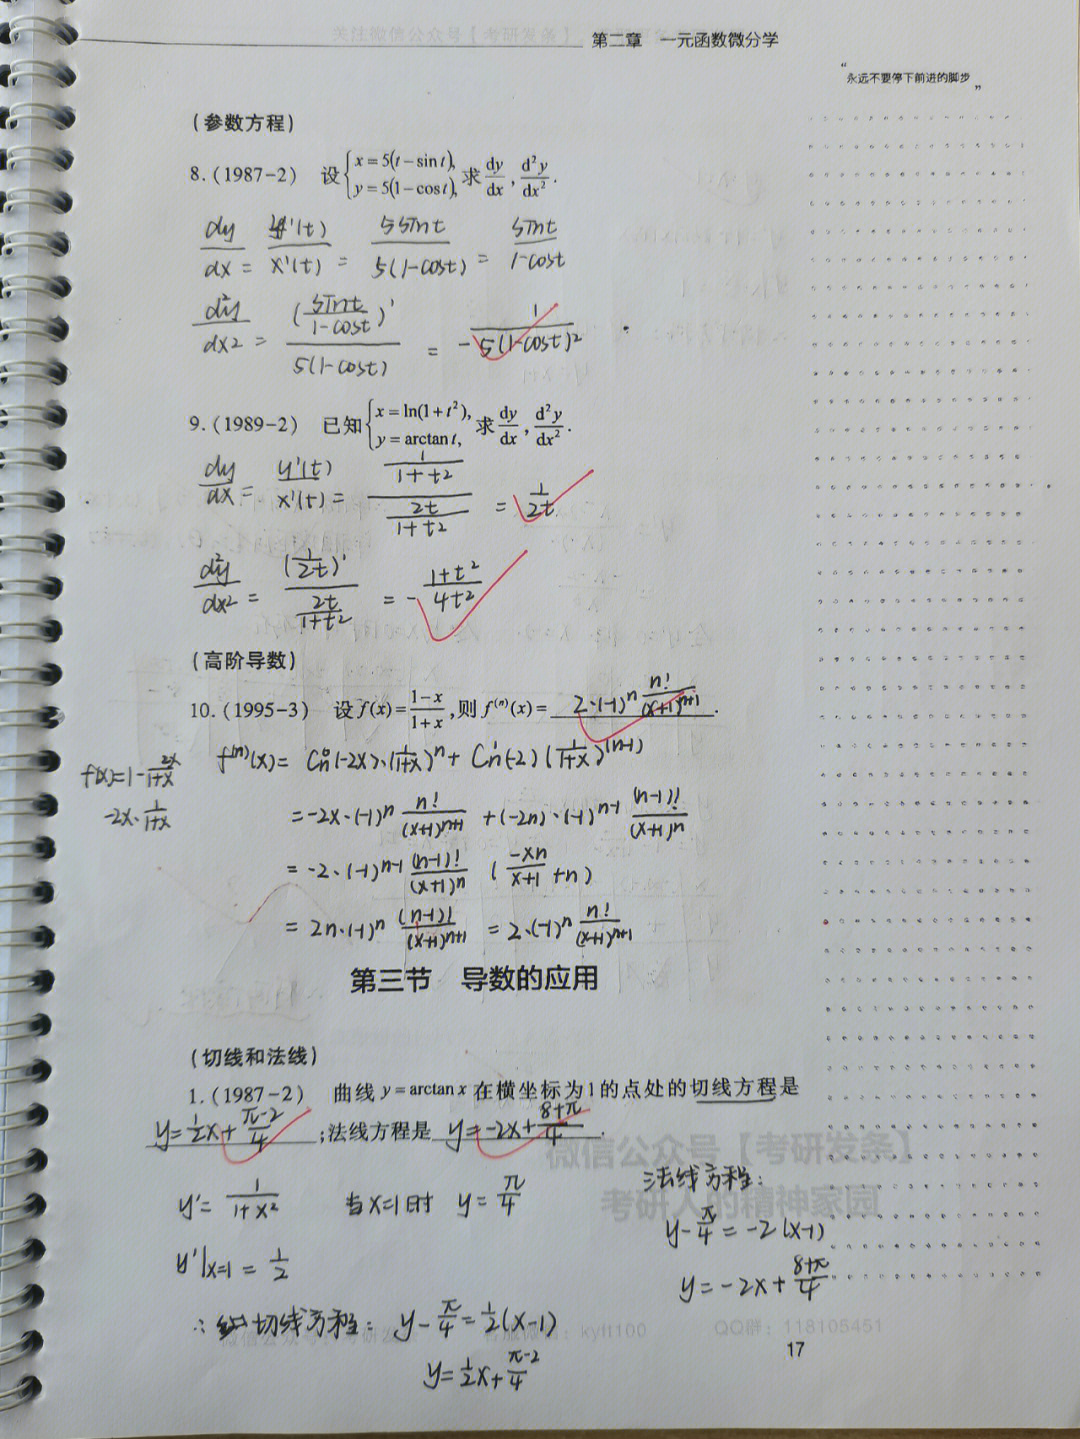 关注微信公众号【考研发条】
第二章 一元函数微分学
“永远不要停下前进的脚步”
(参数方程)
8. (1987-2) 设 { x = 5(t - sin t), y = 5(1 - cos t), 求 dy/dx, d²y/dx².
dy/dx = y'(t)/x'(t) = 5sint/5(1-cost) = sint/1-cost
d²y/dx² = (sint/1-cost)'/5(1-cost) = - 1/5(1-cost)²
9. (1989-2) 已知 { x = ln(1+t²), y = arctan t, 求 dy/dx, d²y/dx².
dy/dx = y'(t)/x'(t) = (1/1+t²)/(2t/1+t²) = 1/2t
d²y/dx² = (1/2t)'/(2t/1+t²) = - 1+t²/4t²
(高阶导数)
10. (1995-3) 设 f(x) = 1-x/1+x, 则 f⁽ⁿ⁾(x) = 2·(-1)ⁿ n!/(x+1)ⁿ⁺¹.
f⁽ⁿ⁾(x) = Cn⁰(-2x)·(1/1+x)ⁿ + Cn¹(-2)(1/1+x)⁽ⁿ⁻¹⁾
f(x)=1-2x/1+x
-2x·1/1+x
= -2x·(-1)ⁿ n!/(x+1)ⁿ⁺¹ + (-2n)·(-1)ⁿ⁻¹ (n-1)!/(x+1)ⁿ
= -2·(-1)ⁿ⁻¹ (n-1)!/(x+1)ⁿ (-xn/x+1 + n)
= 2n·(-1)ⁿ (n-1)!/(x+1)ⁿ⁺¹ = 2·(-1)ⁿ n!/(x+1)ⁿ⁺¹
第三节 导数的应用
(切线和法线)
1. (1987-2) 曲线 y = arctan x 在横坐标为1的点处的切线方程是
y=1/2x+π-2/4 ;法线方程是 y=-2x+8+π/4.
微信公众号【考研发条】
考研人的精神家园
y'= 1/1+x² 当x=1时 y=π/4
法线方程:
y-π/4=-2(x-1)
y'|x=1 = 1/2
y=-2x+8+π/4
∴切线方程: y-π/4=1/2(x-1)
kyft100 QQ群: 118105451
y=1/2x+π-2/4
17